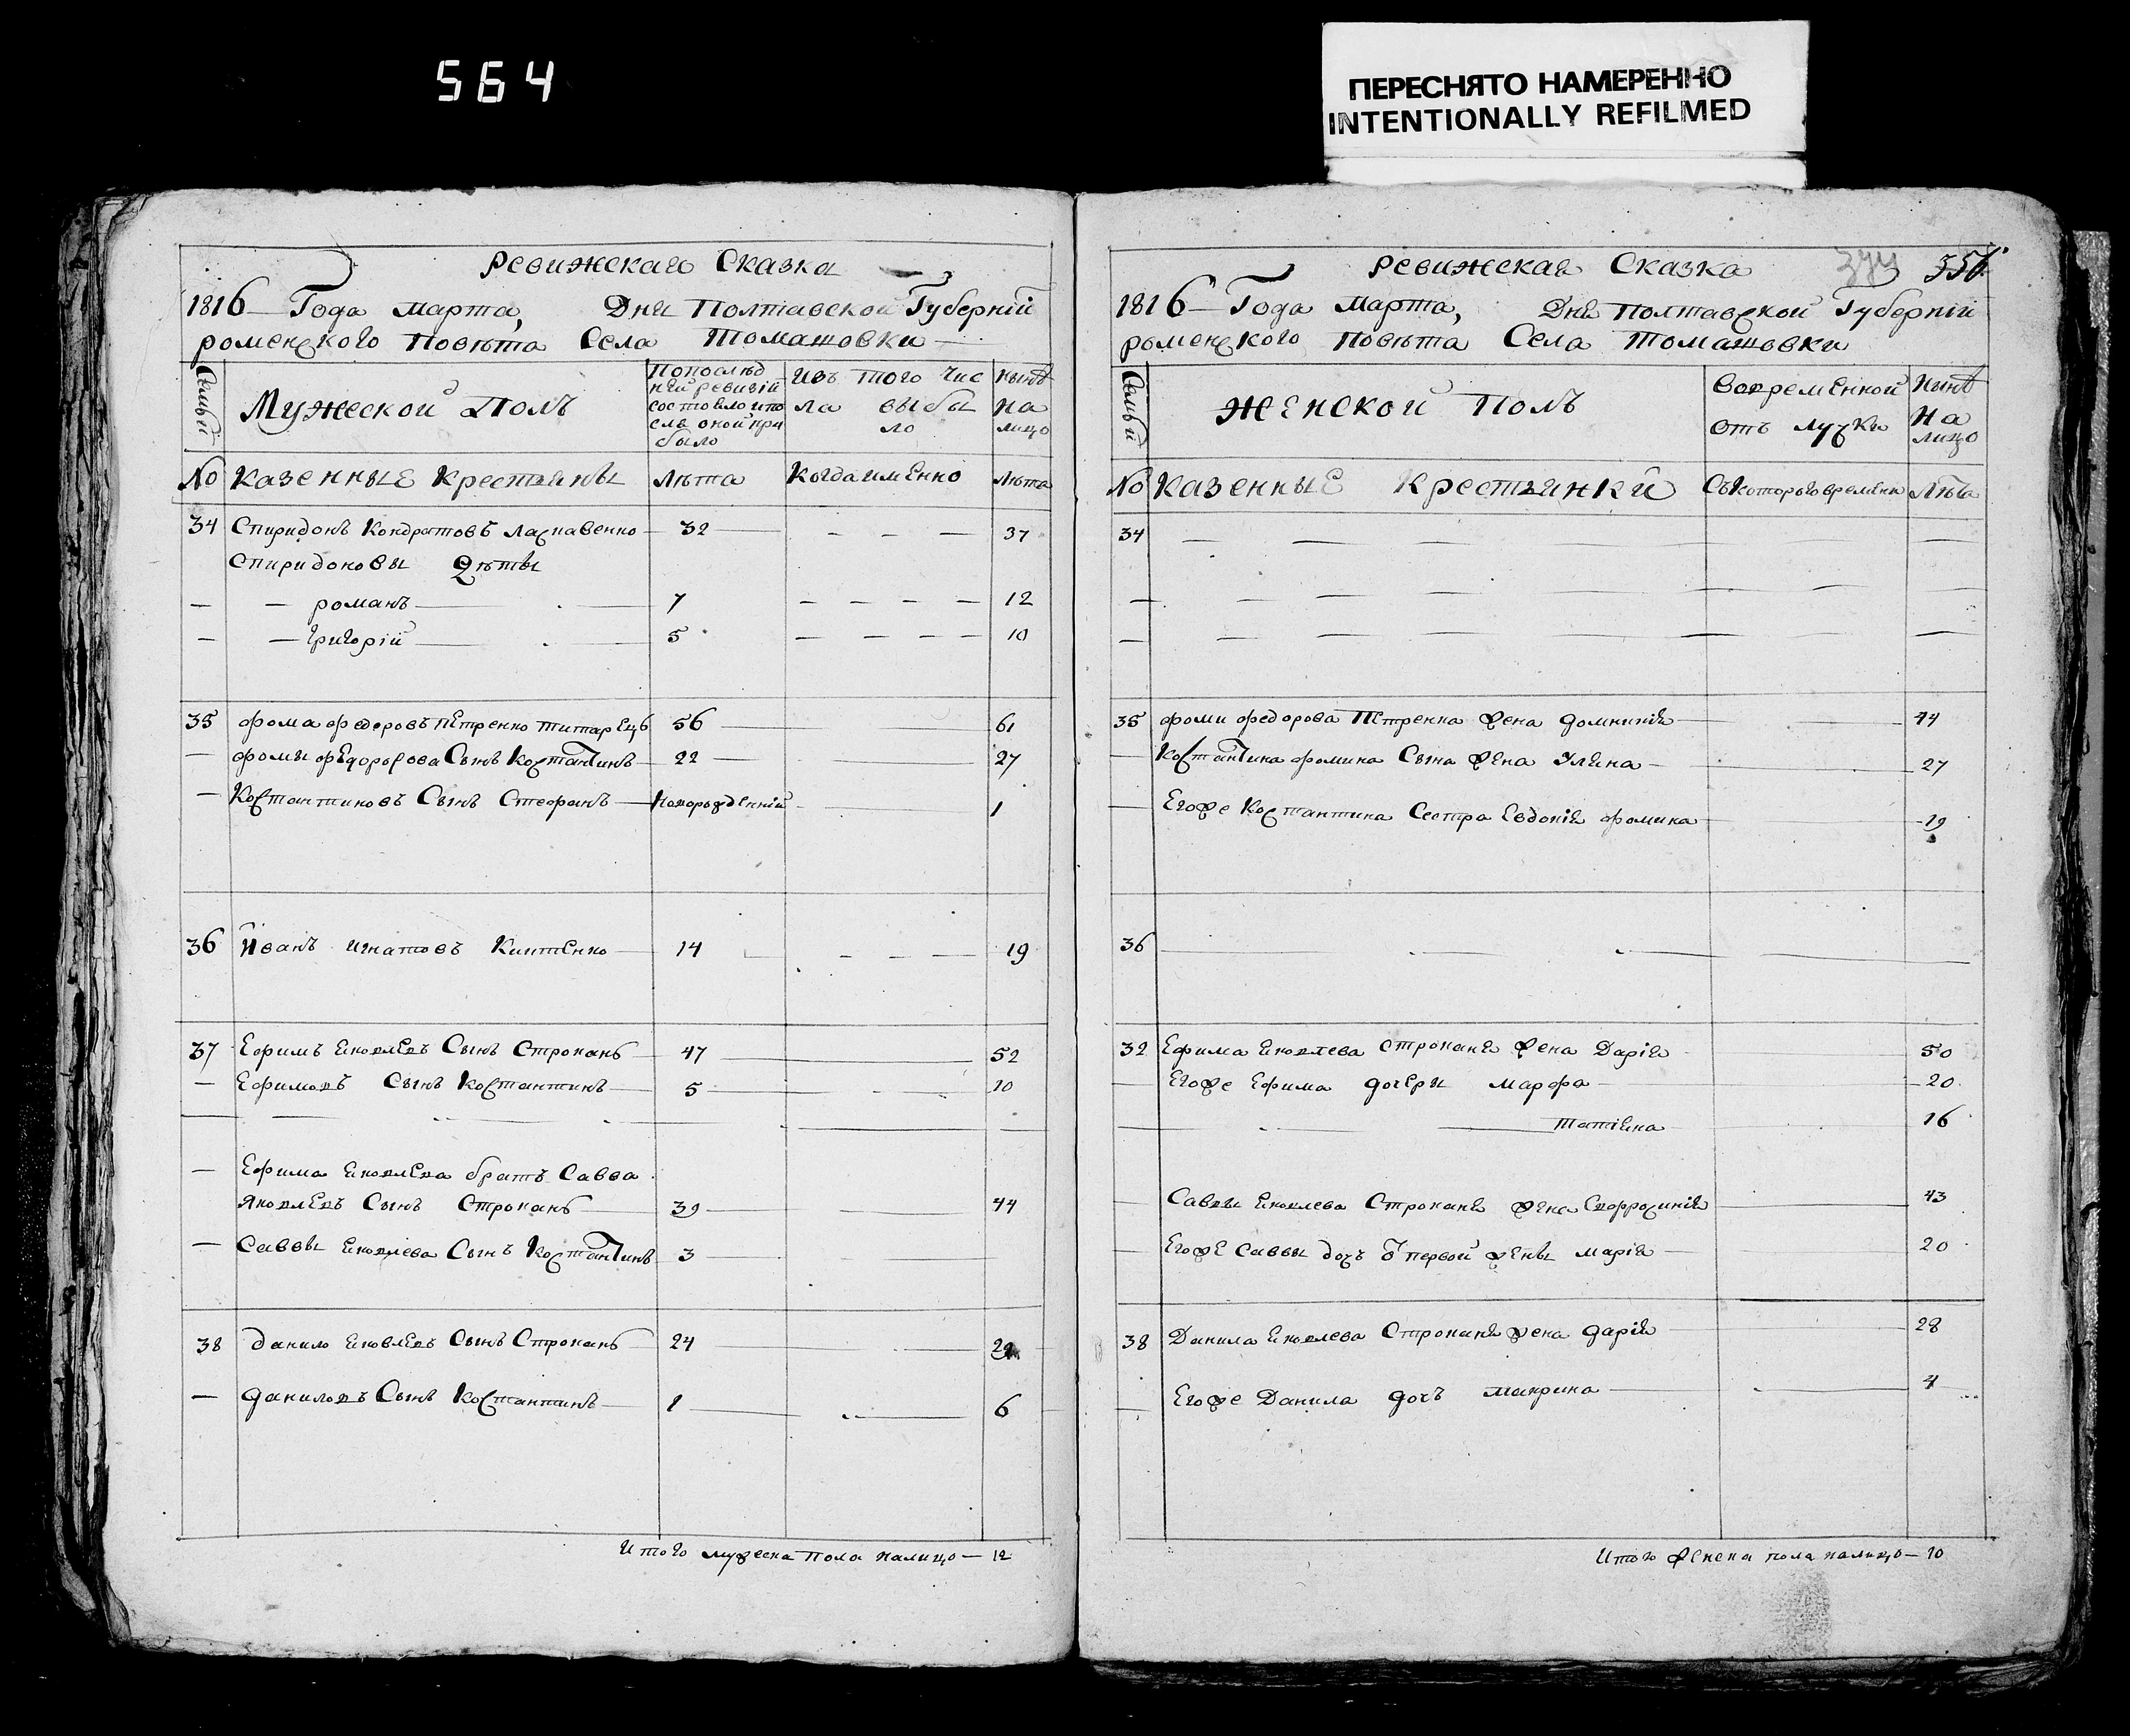 564
ПЕРЕСНЯТО НАМЕРЕННО
INTENTIONALLY REFILMED
Ревижская Сказка
1816 Года марта, Дня Полтавской Губерніи
роменского Повѣта Села Томашовки
Семьи
Мужеской Полъ
Попослѣд
ней ревизіи
состояло ипо
слѣ оной при
было
Изъ того чис
ла выбы
ло
Нынѣ
на
лицо
No Казенные Крестьяны Лѣта Когда именно Лѣта
34 Спиридонъ Кондратовъ 32 37
Спиридоновы Дѣты
романъ 7 12
Григорій 5 10
35 Фома Федоровъ Петренко 56 61
Фомы Сынъ Костантинъ 22 27
Костантиновъ Сынъ Стефанъ Новорожденній 1
36 Иванъ Игнатовъ Книтенко 14 19
37 Ефимъ Яковлевъ Сынъ Строкань 47 52
Ефимовъ Сынъ Костантинъ 5 10
Ефима Яковлева братъ Савва
Яковлевъ Сынъ Строкань 39 44
Саввы Яковлева Сынъ Костантинъ 3
38 Данило Яковлевъ Сынъ Строкань 24
Даниловъ Сынъ Костантинъ 1 6
Итого мужеска пола налицо — 12
Ревижская Сказка 356
1816 Года Марта, Дня Полтавской Губерніи
роменского Повѣта Села Томашовки
Семьи
Женской Полъ
Вовременной
отъ лучки
Нынѣ
На
лицо
No Казенные Крестьянки Съкоторого времени Лѣта
34
35 Фоми Федорова Петренка жена Домникія 44
Костантина Фомина Сына жена Уляна 27
Егоже Костантина Сестра Евдокія Фомина 19
36
32 Ефима Яковлева Строканя жена Дарія 50
Егоже Ефима дочеры Марфа 20
Татіяна 16
Саввы Яковлева Строканя жена 43
Егоже Саввы дочъ ѿ первой жены Марія 20
38 Данила Яковлева Строканя жена Дарія 28
Егоже Данила дочъ Макрина 4
Итого женска пола налицо — 10